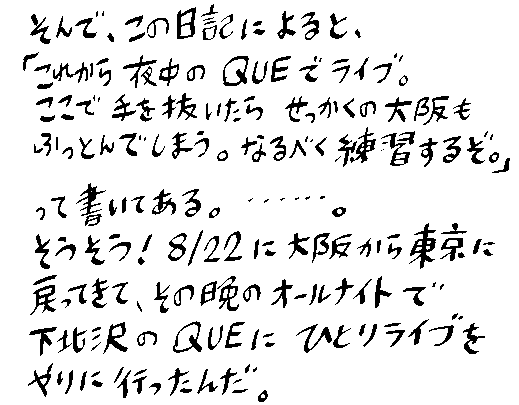 そんで、この日記によると、
「これから夜中のQUEでライブ。
ここで手を抜いたらせっかくの大阪も
ふっとんでしまう。なるべく練習するぞ。」
って書いてある。……。
そうそう！8/22に大阪から東京に
戻ってきて、その晩のオールナイトで
下北沢のQUEにひとりライブを
やりに行ったんだ。